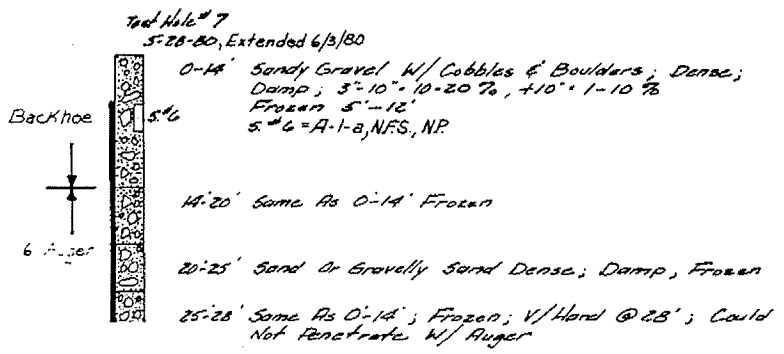 Test Hole #7
5-28-80, Extended 6/3/80
0-14' Sandy Gravel W/ Cobbles & Boulders; Dense;
Damp; 3"-10" = 10-20%, +10" = 1-10%
Frozen 5'-12'
S.#6 = A-1-a, N.F.S., N.P.
Backhoe
S.#6
14'-20' Same As 0'-14' Frozen
6 Auger
20'-25' Sand Or Gravelly Sand Dense; Damp, Frozen
25'-28' Same As 0'-14'; Frozen; V/Hard @ 28'; Could
Not Penetrate W/ Auger